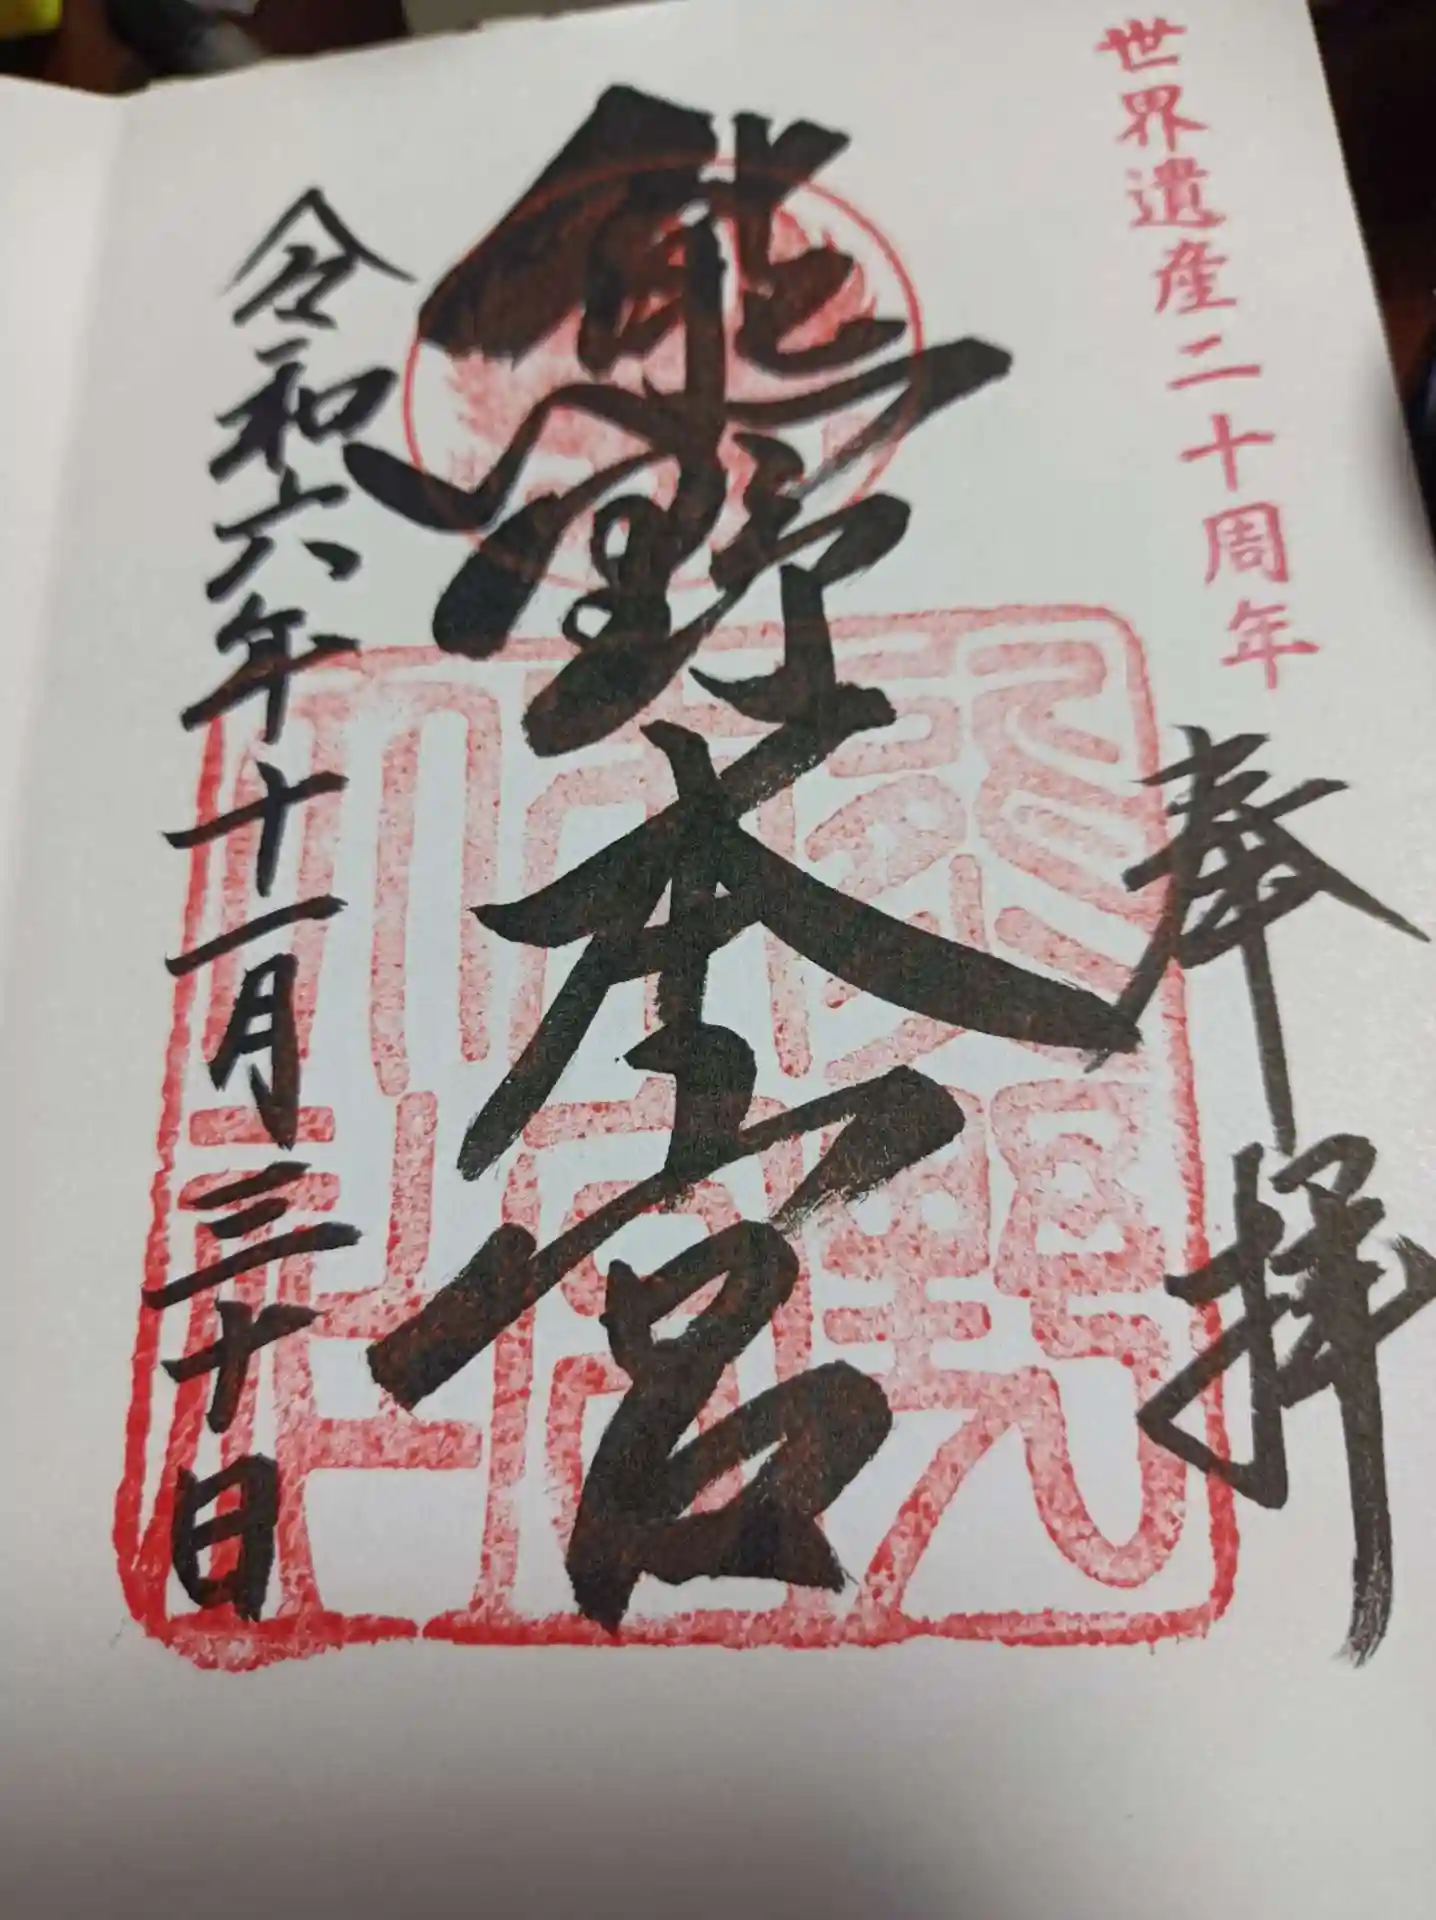 世界遺産二十周年
奉拝
熊野本宮
令和六年十一月三十日